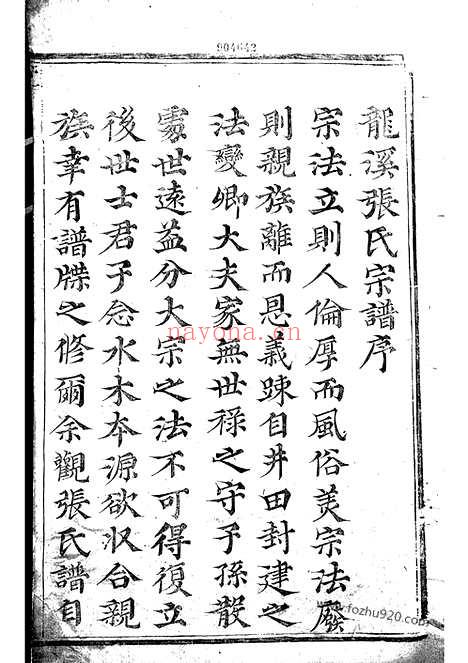 904642
龍溪張氏宗譜序
宗法立則人倫厚而風俗美宗法廢
則親族離而恩義踈自井田封建之
法變卿大夫家無世禄之守子孫散
處世遠益分大宗之法不可得復立
後世士君子念水木本源欲収合親
族幸有譜牒之修爾余觀張氏譜自
nayona.cn
www.fozhu920.com